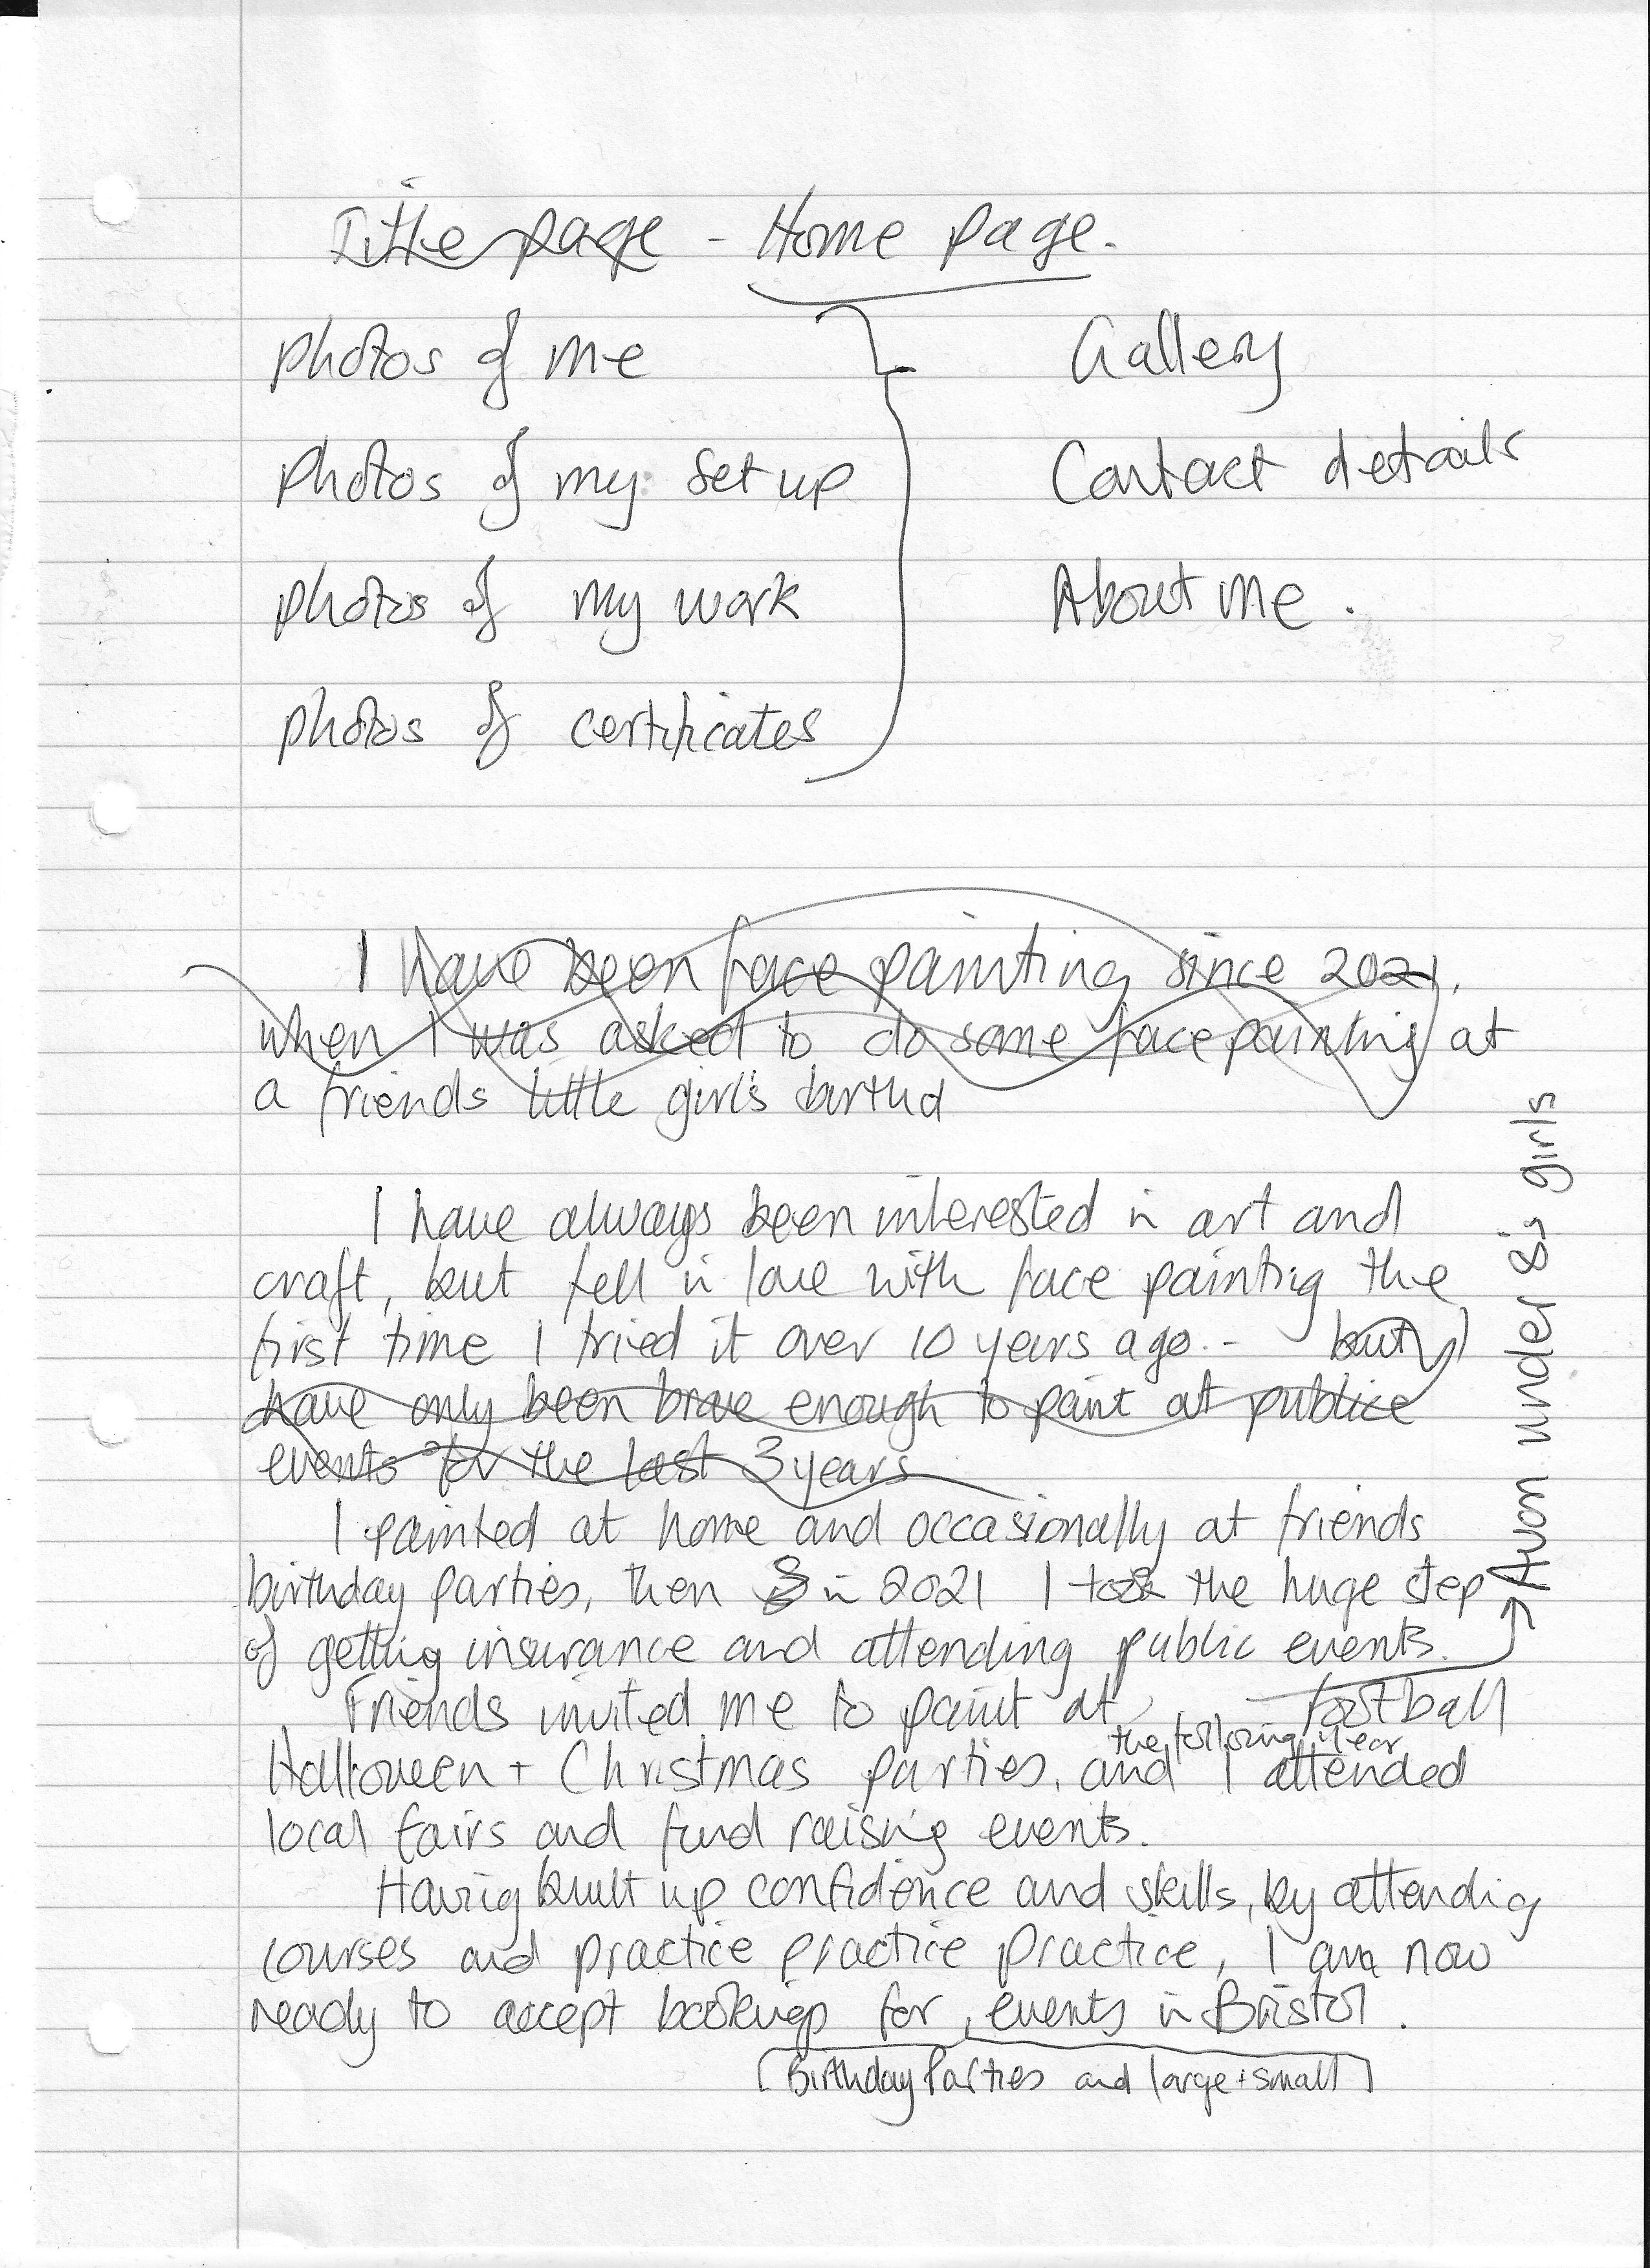 Title page - Home page.
photos of me
photos of my set up
photos of my work
photos of certificates
Gallery
Contact details
About me.
I have been face painting since 2021,
when I was asked to do some face painting at
a friends little girl's birthd
I have always been interested in art and
craft, but fell in love with face painting the
first time I tried it over 10 years ago. - but I
have only been brave enough to paint at publice
events for the last 3 years
I painted at home and occasionally at friends
birthday parties, then in 2021 I took the huge step
of getting insurance and attending public events.
Friends invited me to paint at football
Avon under 8's girls
the following year
Halloween + Christmas parties, and I attended
local fairs and fund raising events.
Having built up confidence and skills, by attending
courses and practice practice practice, I am now
ready to accept bookings for, events in Bristol.
Birthday Parties and large + small